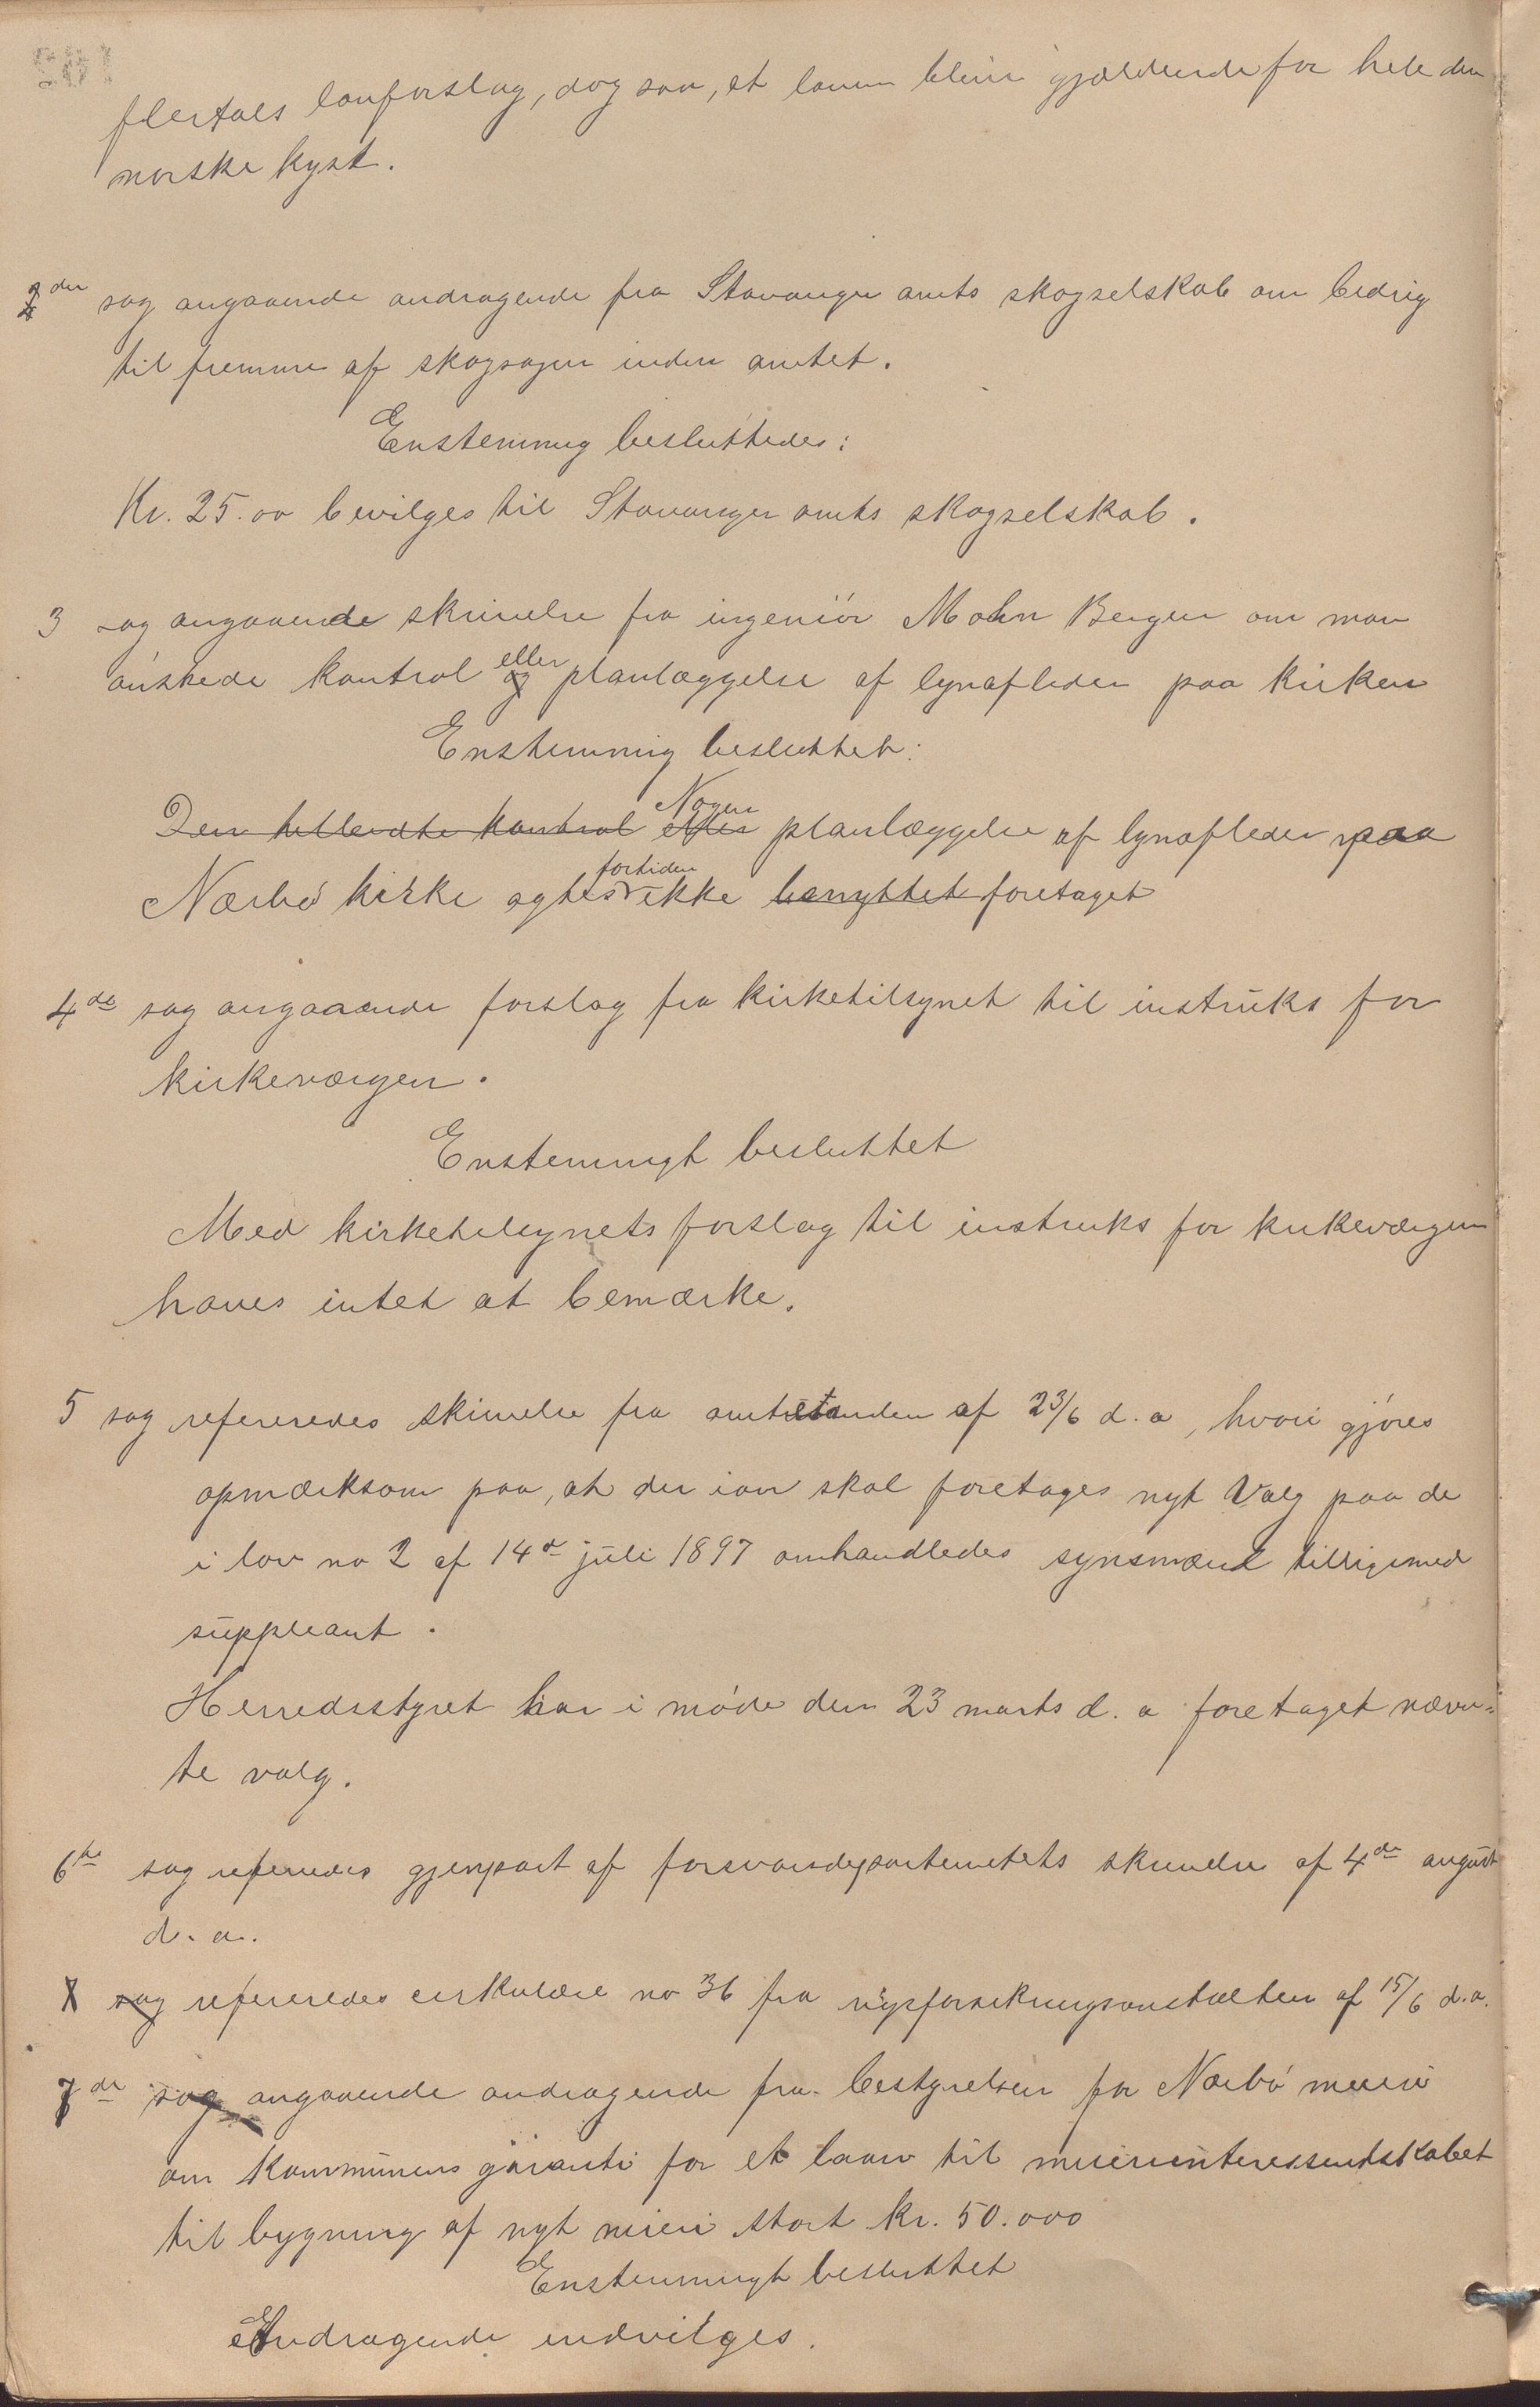 flertals lovforslag, dog saa, at loven blir gjældende for hele den
norske kyst.
2den sag angaaende andragende fra Stavanger amts skogselskab om bidrag
til fremme af skogsagen inden amtet.
Enstemmig besluttedes:
Kr. 25.00 bevilges til Stavanger amts skogselskab.
3 sag angaaende skrivelse fra ingeniør Mohn Bergen om man
ønskede kontrol og eller planlæggelse af lynafleder paa kirken
Enstemmig besluttet:
Den tilbudte kontrol eller Nogen planlæggelse af lynafleder paa
Nærbø kirke agtes fortiden ikke benyttet foretaget
4de sag angaaende forslag fra kirketilsynet til instruks for
kirkeværgen.
Enstemmigt besluttet
Med kirketilsynets forslag til instruks for kirkeværgen
haves intet at bemærke.
5 sag refereredes skrivelse fra amtmanden af 23/6 d. a, hvori gjøres
opmærksom paa, at der iaar skal foretages nyt Valg paa de
i lov no 2 af 14de juli 1897 omhandledes synsmænd tilligemed
suppleant.
Herredsstyret har i møde den 23 marts d. a foretaget nævn-
te valg.
6te sag refereredes gjenpart af forsvarsdepartementets skrivelse af 4de august
d. a.
sag refereredes cirkulære no 36 fra rigsforsikringsanstalten af 15/6 d.a.
7de sag angaaende andragende fra bestyrelsen for Nærbø meieri
om kommunens garanti for et laan til meieriinteressentskabet
til bygning af nyt meieri stort kr. 50.000
Enstemmigt besluttet
Andragende indvilges.